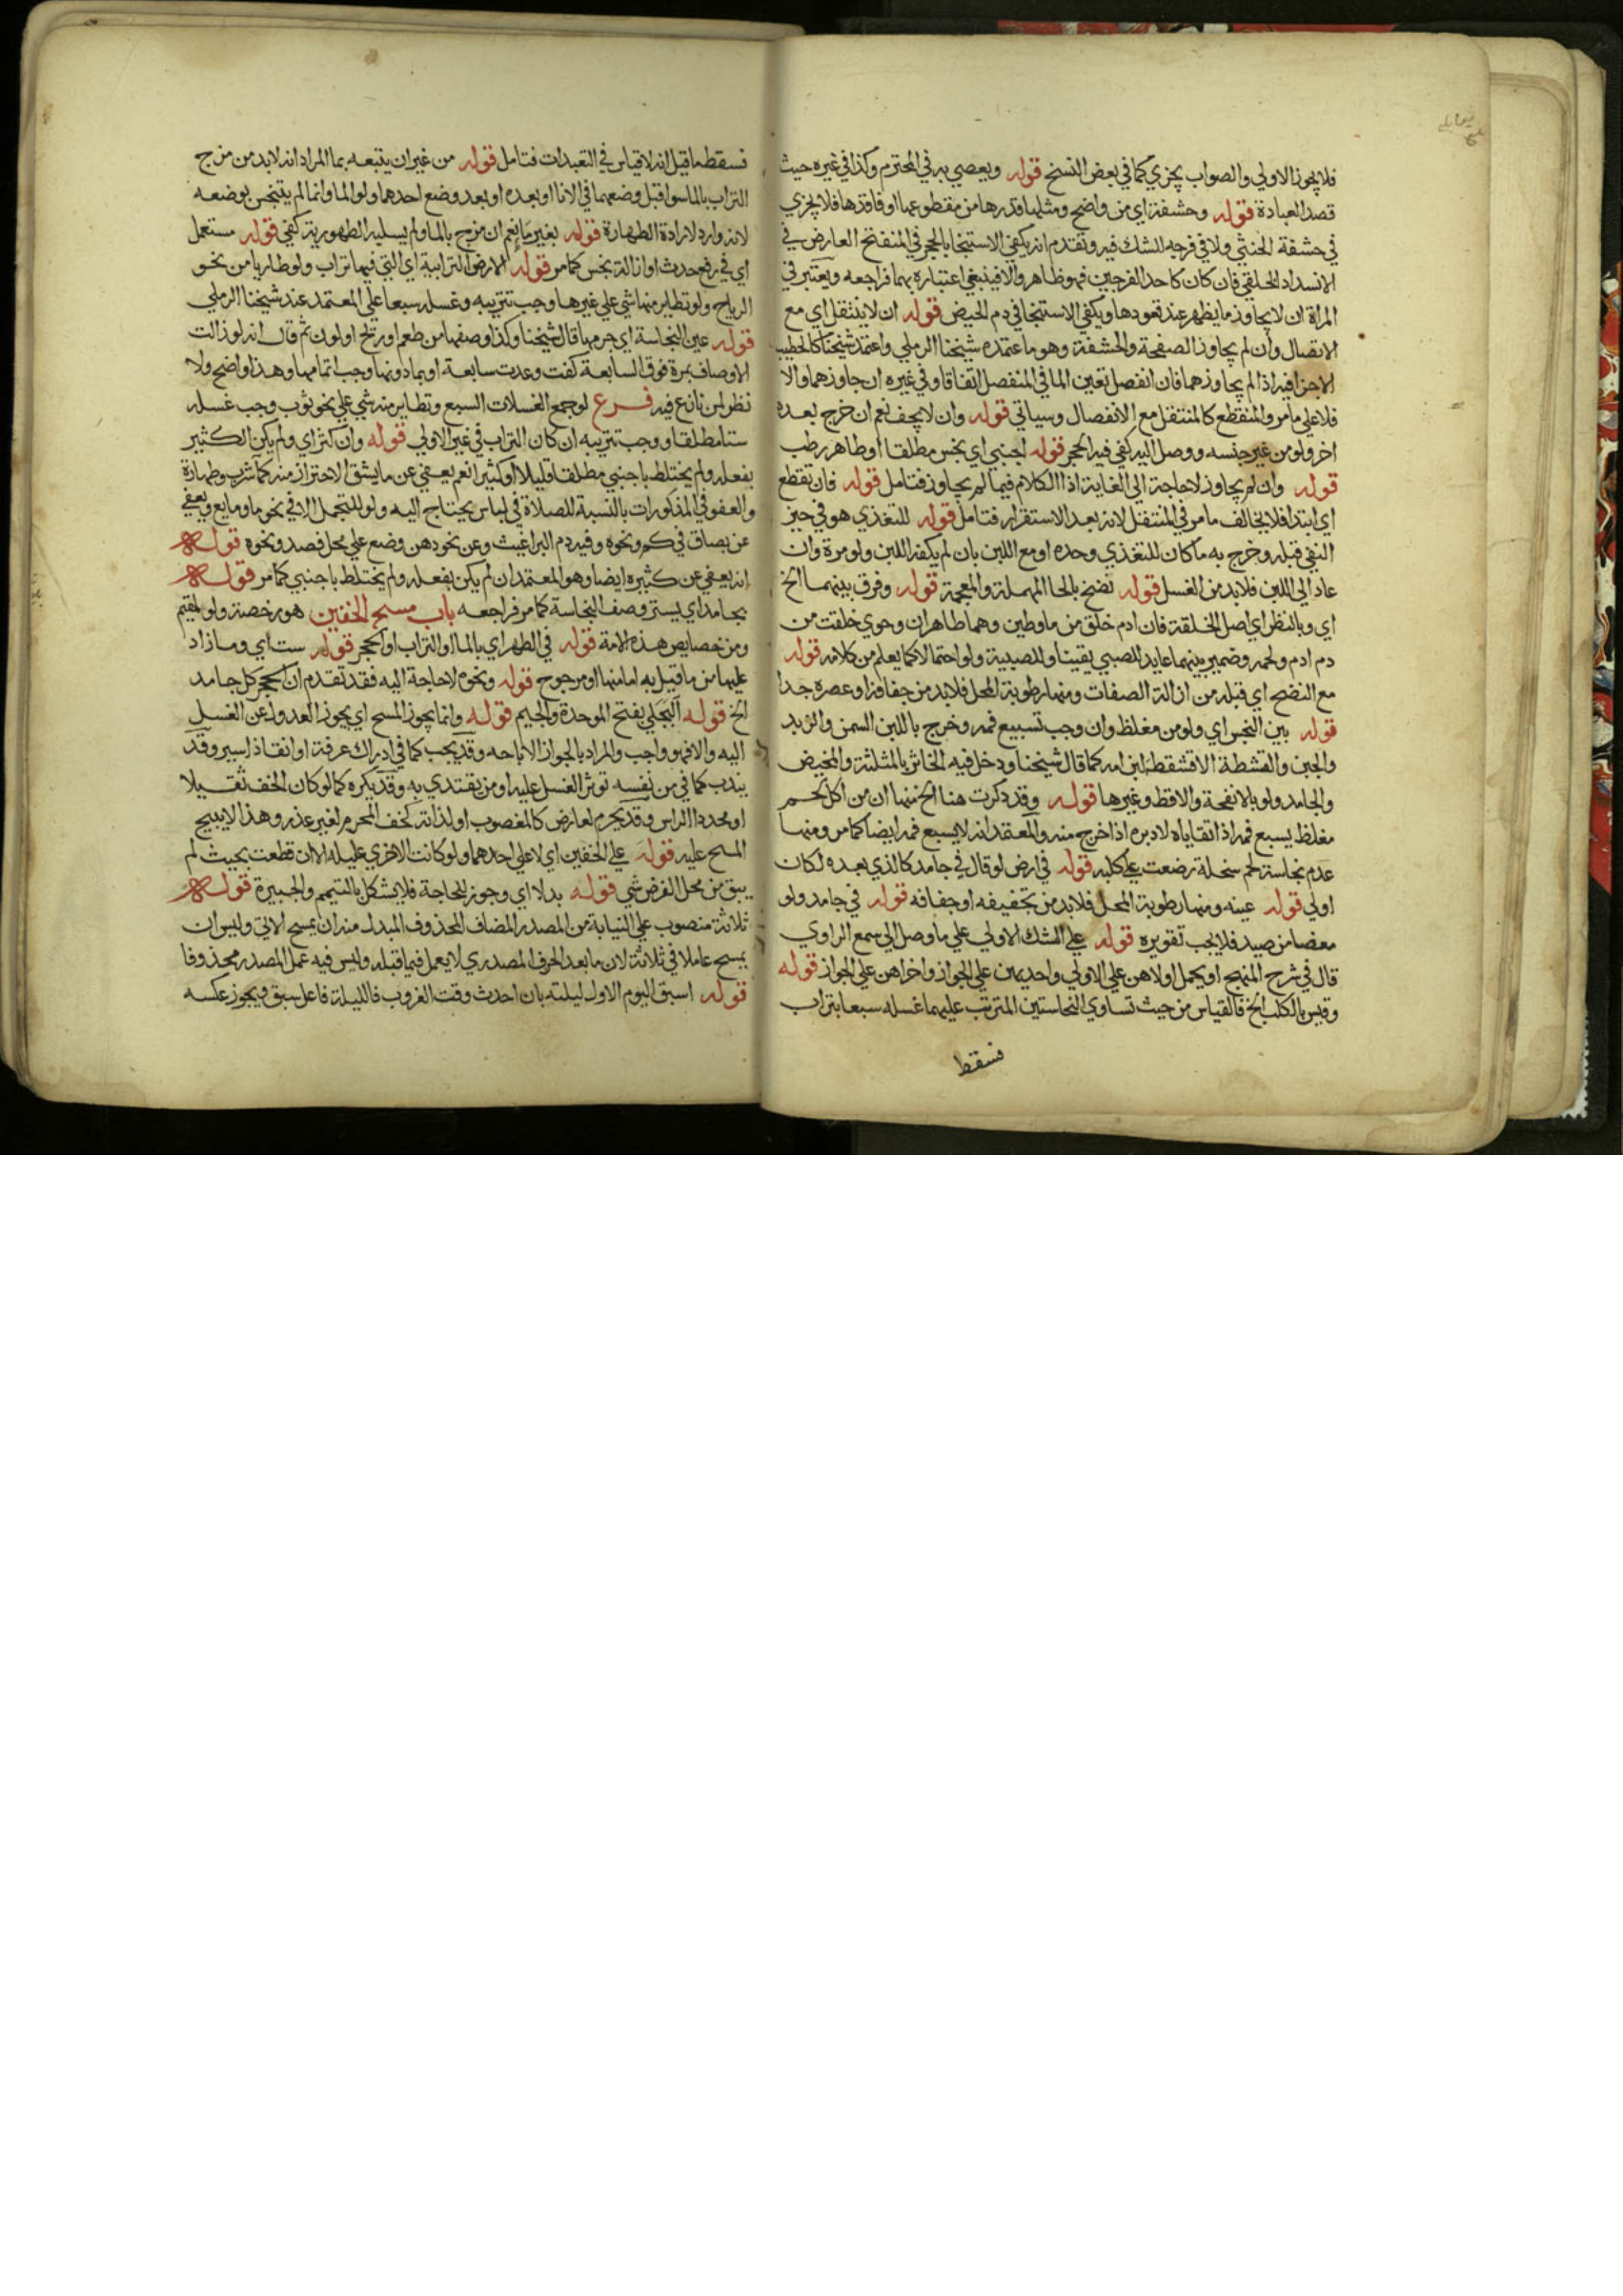 فلا يجوز الاولي والصواب يجزي كما في بعض النسخ قوله ويعصي به في المحترم وكذا في غيره حيث
قصد العبادة قوله وحشفة اي من واضح ومثلها قدرها من مقطوعها او فاقدها فلا يجزي
في حشفة الخنثي ولا في فرجه للشك فيه وتقدم انه يكفي الاستنجا بالحجر في المنفتح العارض في
الانسداد الخلقي فان كان كاحد الفرجين فهو ظاهر والا فينبغي اعتباره بهما فراجعه ويعتبر في
المراة ان لا يجاوز ما يظهر عند قعودها ويكفي الاستنجا في دم الحيض قوله ان لا ينتقل اي مع
الاتصال وان لم يجاوز الصفحة والحشفة وهو ما اعتمده شيخنا الرملي واعتمد شيخنا كالخطيب
الاجزا فيه اذا لم يجاوزهما فان انفصل تعين الما في المنفصل اتفاقا وفي غيره ان جاوزهما والا
فلا علي ما مر والمنقطع كالمنتقل مع الانفصال وسياتي قوله وان لا يجف نعم ان خرج بعده
اخر ولو من غير جنسه ووصل اليه كفي فيه الحجر قوله اجنبي اي نجس مطلقا او طاهر رطب
قوله وان لم يجاوز لا حاجة الي الغاية اذ الكلام فيما لم يجاوز فتامل قوله فان تقطع
اي ابتدا فلا يخالف ما مر في المنتقل لانه بعد الاستقرار فتامل قوله للتغذي هو في حيز
النفي قبله وخرج به ما كان للتغذي وحده او مع اللبن بان لم يكفه اللبن ولو مرة وان
عاد الي اللبن فلا بد من الغسل قوله نضح بالحا المهملة والمعجمة قوله وفرق بينهما الخ
اي وبالنظر اي اصل الخلقة فان ادم خلق من ما وطين وهما طاهران وحوي خلقت من
دم ادم ولحمه وضمير بينهما عايد للصبي يقينا وللصبية ولو احتمالا كما يعلم من كلامه قوله
مع النضح اي قبله من ازالة الصفات ومنها رطوبة المحل فلا بد من جفافها وعصره جدا
قوله بين النجس اي ولو من مغلظ وان وجب تسبيع فمه وخرج باللبن السمن والزبد
والجبن والقشطة الا قشطة لبن امه كما قال شيخنا ودخل فيه الخاثر بالمثلثة والمخيض
والجامد ولو بالانفحة والاقط وغيرها قوله وقد ذكرت هنا الخ منها ان من اكل لحم
مغلظ يسبع فمه اذا تقاياه لا دبره اذا خرج منه والمعتمد انه لا يسبع فمه ايضا كما مر ومنها
عدم نجاسة لحم سخلة رضعت علي كلبه قوله في ارض لو قال في جامد كالذي بعده لكان
اولي قوله عينه ومنها رطوبة المحل فلا بد من تجفيفه او جفافه قوله في جامد ولو
معضا من صيد فلا يجب تقويره قوله علي الشك الاولي علي ما وصل الي سمع الراوي
قال في شرح المنهج او يحمل اولاهن علي الاولي واحديهن علي الجواز واخراهن علي الجواز قوله
وقيس بالكلب الخ فالقياس من حيث تساوي النجاستين المترتب عليهما غسله سبعا بتراب
فسقط
فسقط ما قيل انه لا قياس في التعبدات فتامل قوله من غير ان يتبعه بما المراد انه لا بد من مزج
التراب بالما سوا قبل وضعهما في الانا او بعده او بعد وضع احدهما ولو الما وانما لم يتنجس بوضعه
لانه وارد لارادة الطهارة قوله بغير ما نعم ان مزج بالما ولم يسلبه الطهورية كفي قوله مستعمل
اي في رفع حدث او ازالة نجس كما مر قوله الارض الترابية اي التي فيها تراب ولو طاريا من نحو
الرياح ولو تطاير منها شي علي غيرها وجب تتريبه وغسله سبعا علي المعتمد عند شيخنا الرملي
قوله عين النجاسة اي جرمها قال شيخنا وكذا وصفها من طعم او ريح او لون ثم قال انه لو زالت
الاوصاف بمرة فوق السابعة كفت وعدت سابعة او بما دونها وجب اتمامها وهذا واضح ولا
نظر لمن نازع فيه فرع لو جمع الغسلات السبع وتطاير منه شي علي نحو ثوب وجب غسله
ستا مطلقا ووجب تتريبه ان كان التراب في غير الاولي قوله وان كثر اي ولم يكن الكثير
بفعله ولم يختلط باجنبي مطلقا قليلا او كثيرا نعم يعفي عن ما يشق الاحتراز منه كما شرب وطهارة
والعفو في المذكورات بالنسبة للصلاة في لباس يحتاج اليه ولو للتجمل لا في نحو ما ومايع ويعفي
عن بصاق في كم ونحوه وفيه دم البراغيث وعن نحو دهن وضع علي محل فصد ونحوه قوله
انه يعفي عن كثيره ايضا وهو المعتمد ان لم يكن بفعله ولم يختلط باجنبي كما مر قوله
بجامد اي يستر وصف النجاسة كما مر فراجعه باب مسح الخفين هو رخصة ولو لمقيم
ومن خصايص هذه الامة قوله في الطهر اي بالما او التراب او الحجر قوله ست اي وما زاد
عليها من ما قيل به اما منها او مرجوح قوله ونحوه لا حاجة اليه فقد تقدم ان الحجر كل جامد
الخ قوله البجلي بفتح الموحدة والجيم قوله وانما يجوز المسح اي يجوز العدول عن الغسل
اليه والا فهو واجب والمراد بالجواز الاباحه وقد يجب كما في ادراك عرفة او انقاذ اسير وقد
يندب كما في من نفسه توثر الغسل عليه او من يقتدي به وقد يكره كما لو كان الخف ثقيلا
او محدد الراس وقد يحرم لعارض كالمغصوب او لذاته كخف المحرم لغير عذر وهذا لا يبيح
المسح عليه قوله علي الخفين اي لا علي احدهما ولو كانت الاخري عليله الا ان قطعت بحيث لم
يبق من محل الفرض شي قوله بدلا اي وجوز للحاجة فلا يشكل بالتيمم والجبيرة قوله
ثلاثة منصوب علي النيابة من المصدر المضاف المحذوف المبدل منه ان يمسح الاتي وليس ان
يمسح عاملا في ثلاثة لان ما بعد الحرف المصدري لا يعمل فيما قبله وليس فيه عمل المصدر محذوفا
قوله اسبق اليوم الاول ليلته بان احدث وقت الغروب فالليلة فاعل سبق ويجوز عكسه